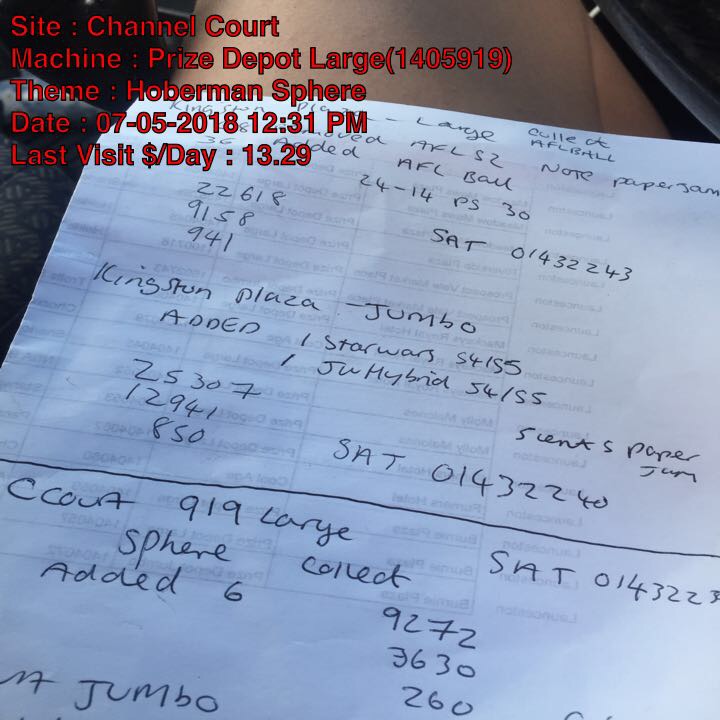 Site : Channel Court
Machine : Prize Depot Large(1405919)
Theme : Hoberman Sphere
Date : 07-05-2018 12:31 PM
Last Visit $/Day : 13.29
Kingston - Large Collect
AFL S2 AFLBALL
Added AFL Ball NOTE paperjam
24-14 PS 30
22618
9158
941
SAT 01432243
Kingston plaza - JUMBO
ADDED 1 Starwars S4/S5
1 JW Hybrid S4/S5
25307
12941
850
Scents paper
Jam
SAT 01432240
CCourt 919 Large
Sphere Collect
SAT 0143223
Added 6
9272
3630
260
JUMBO